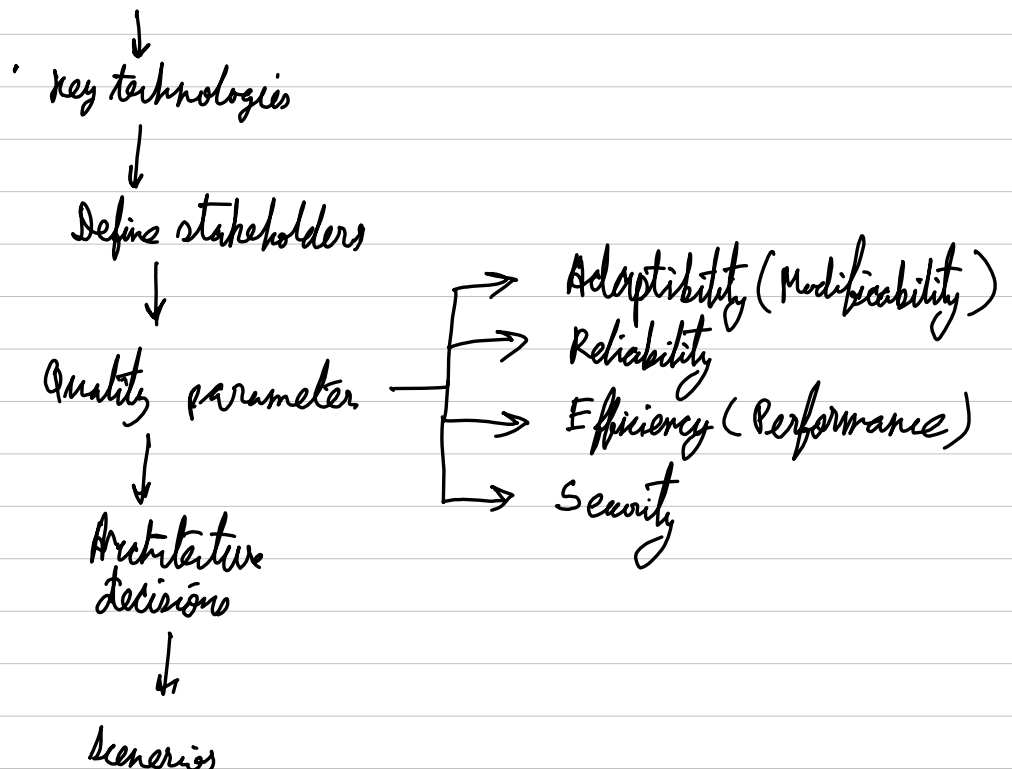 Key technologies
Define stakeholders
Quality parameter
Adaptibility (Modificability)
Reliability
Efficiency (Performance)
Security
Architecture
decisions
Scenerios